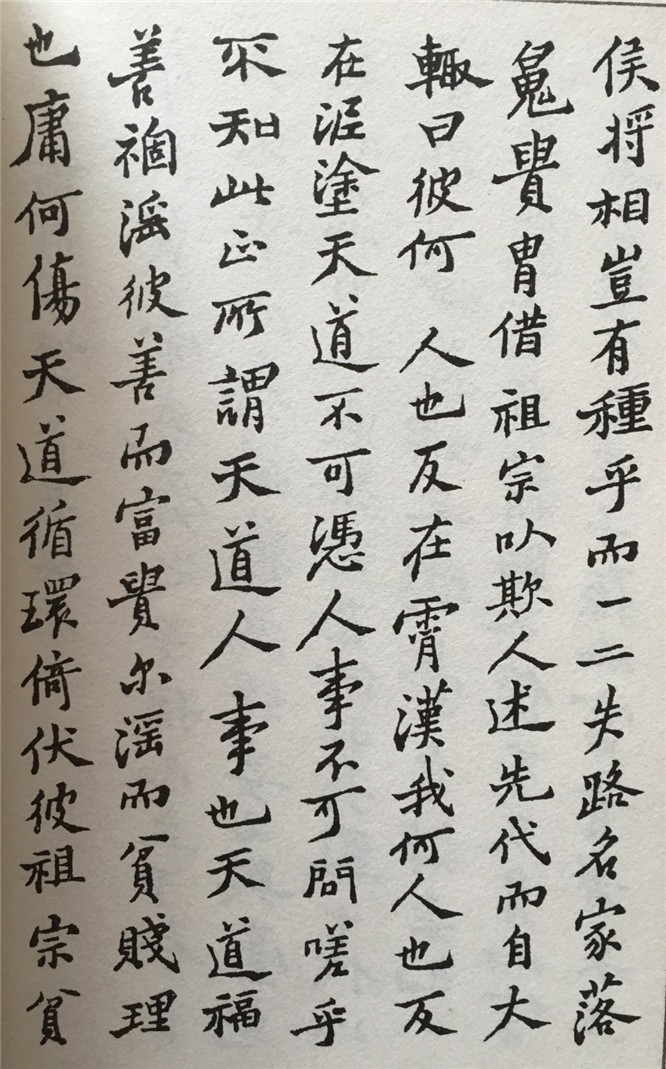 侯將相豈有種乎而一二失路名家落
魄貴胄借祖宗以欺人述先代而自大
輒曰彼何人也反在霄漢我何人也反
在泥塗天道不可憑人事不可問嗟乎
不知此正所謂天道人事也天道福
善禍淫彼善而富貴尔淫而貧賤理
也庸何傷天道循環倚伏彼祖宗貧